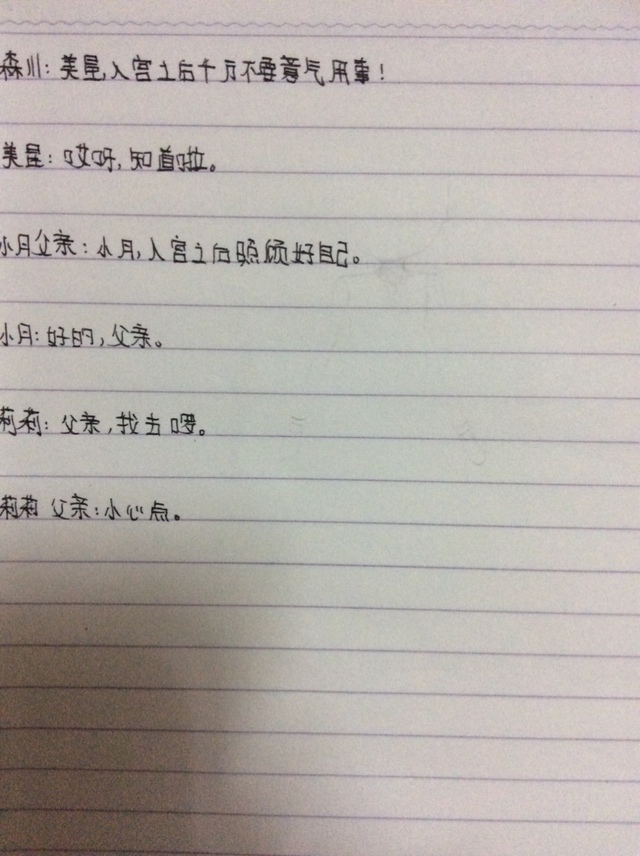 森川:美星,入宫之后千万不要意气用事!
美星:哎呀,知道啦。
小月父亲:小月,入宫之后照顾好自己。
小月:好的,父亲。
莉莉:父亲,我去啰。
莉莉 父亲:小心点。